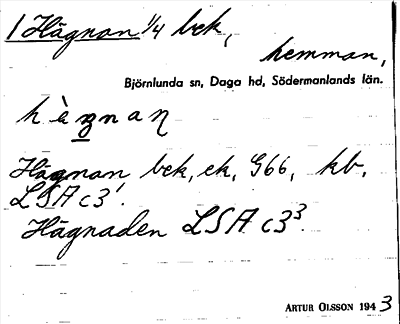 1 Hägnan 1/4 bek,
hemman,
Björnlunda sn, Daga hd, Södermanlands län.
hägnaŋ
Hägnan bek, ek, G66, kb,
LSA c3¹.
Hägnaden LSA c3³.
ARTUR OLSSON 1943